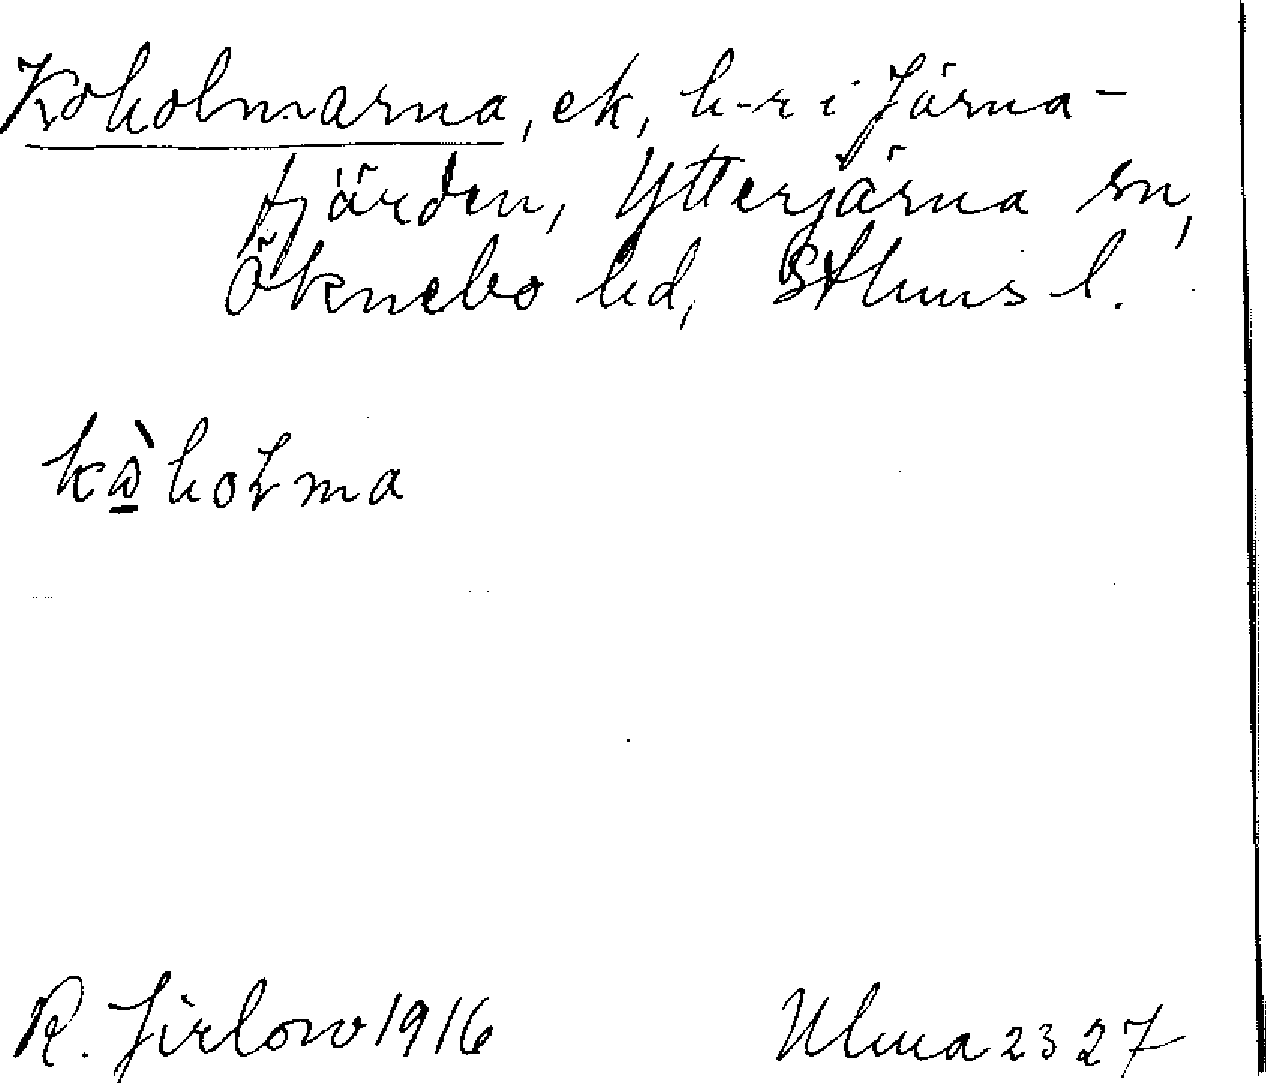 Koholmarna, ek, h-r i Järna-
fjärden, Ytterjärna sn,
Öknebo hd, Sthms l.
kɷ̀holma
R. Jirlow 1916
Ulma 2327